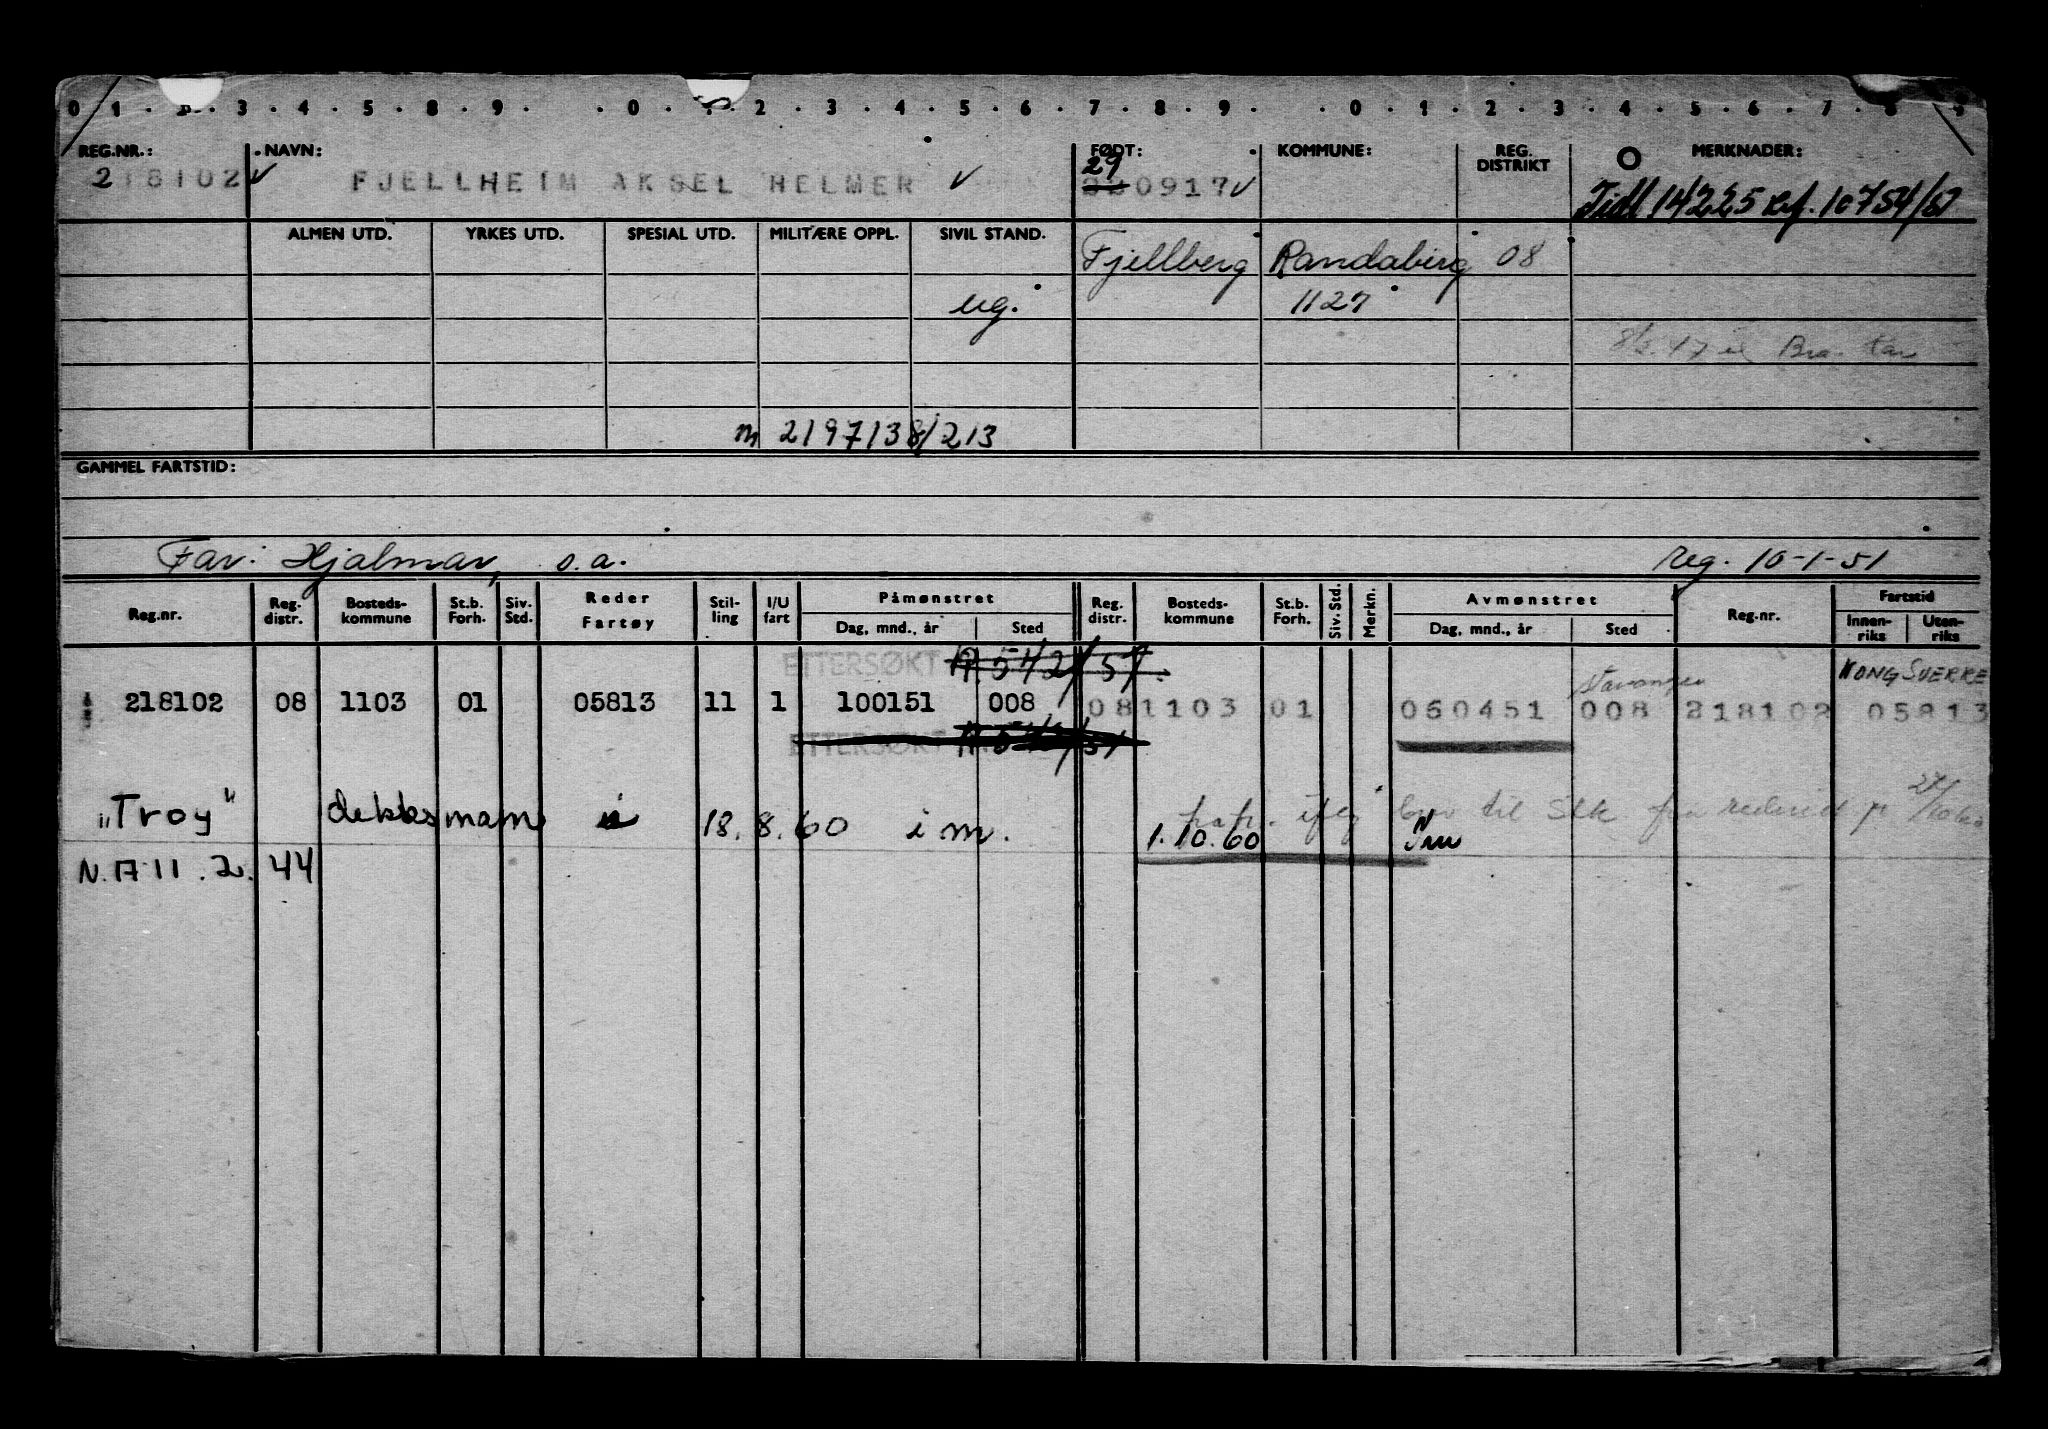 0 1 . 2 . 3 . 4 . 5 . 8 . 9 . . 0 . 1 . 2 . 3 . 4 . 5 . 6 . 7 . 8 . 9 . . 0 . 1 . 2 . 3 . 4 . 5 . 6 . 7 . 8 . 9
REG.NR.: NAVN: FØDT: KOMMUNE: REG. DISTRIKT MERKNADER:
218102 FJELLHEIM AKSEL HELMER 29 0917
Tidl 14225 Ref. 10754/
ALMEN UTD. YRKES UTD. SPESIAL UTD. MILITÆRE OPPL. SIVIL STAND.
Fjellberg Randaberg 08
ug. 1127
m 2197138/213
GAMMEL FARTSTID:
Far: Hjalmar, s.a. reg. 10-1-51
Reg.nr. Reg. distr. Bosteds-kommune St.b. Forh. Siv. Std. Reder Fartøy Stil-ling I/U fart Påmønstret Dag, mnd., år Sted Reg. distr. Bosteds-kommune St.b. Forh. Siv. Std. Merkn. Avmønstret Dag, mnd., år Sted Reg.nr. Fartstid Innen-riks Uten-riks
ETTERSØKT A 542/51.
Stavanger KONG SVERRE
218102 08 1103 01 05813 11 1 100151 008 08 1103 01 060451 008 218102 05813
ETTERSØKT
"Troy" dekksmann 18.8.60 i m. 1.10.60
brev til Slk fra rederiet
N.A 11.2.44